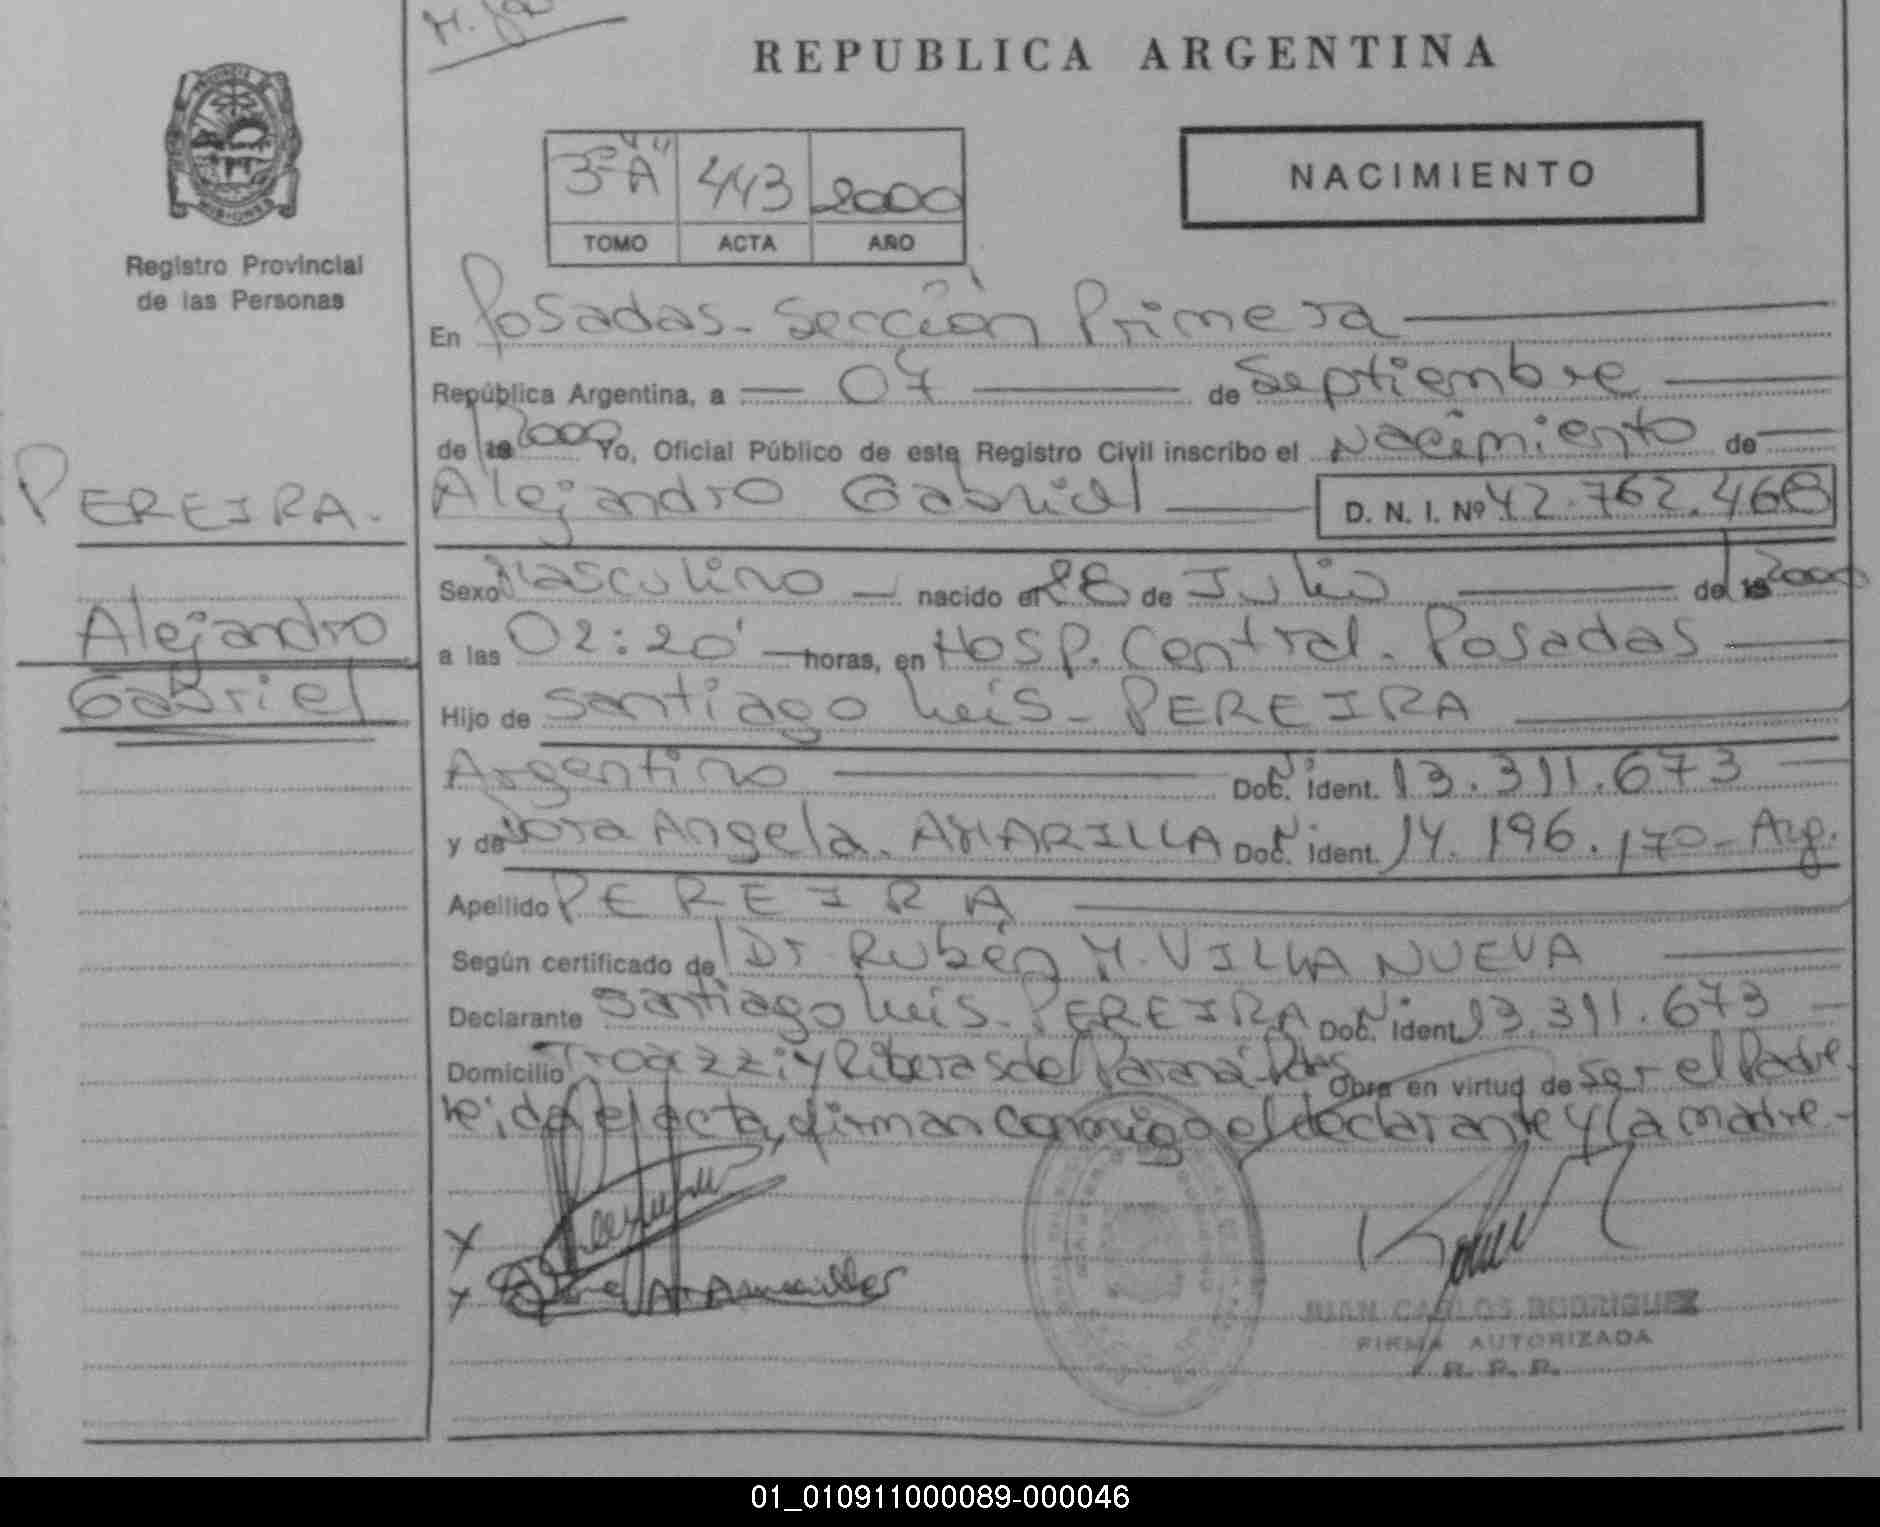 REPUBLICA ARGENTINA
NACIMIENTO
3º "A" 443 2000
TOMO ACTA AÑO
MISIONES
Registro Provincial
de las Personas
En Posadas - Sección Primera
República Argentina, a 07 de Septiembre
de 2000 Yo, Oficial Público de este Registro Civil inscribo el Nacimiento de
PEREIRA.
Alejandro Gabriel D. N. I. Nº 42.762.468
Sexo Masculino nacido el 28 de Julio de 2000
Alejandro
a las 02:20' horas, en Hosp. Central. Posadas
Gabriel
Hijo de Santiago Luis - PEREIRA
Argentino Doc. ident. 13.311.673
y de Nora Angela. AMARILLA Doc. ident. 14.196.170 - Arg.
Apellido PEREIRA
Según certificado de Dr. Rubén M. VILLANUEVA
Declarante Santiago Luis - PEREIRA Doc. Ident. 13.311.673
Domicilio y Riberas del Paraná - Pdas Obra en virtud de ser el Padre.
Leida el acta, firman conmigo el declarante y la madre -
x
x
JUAN CARLOS RODRIGUEZ
FIRMA AUTORIZADA
R. P. P.
01_010911000089-000046